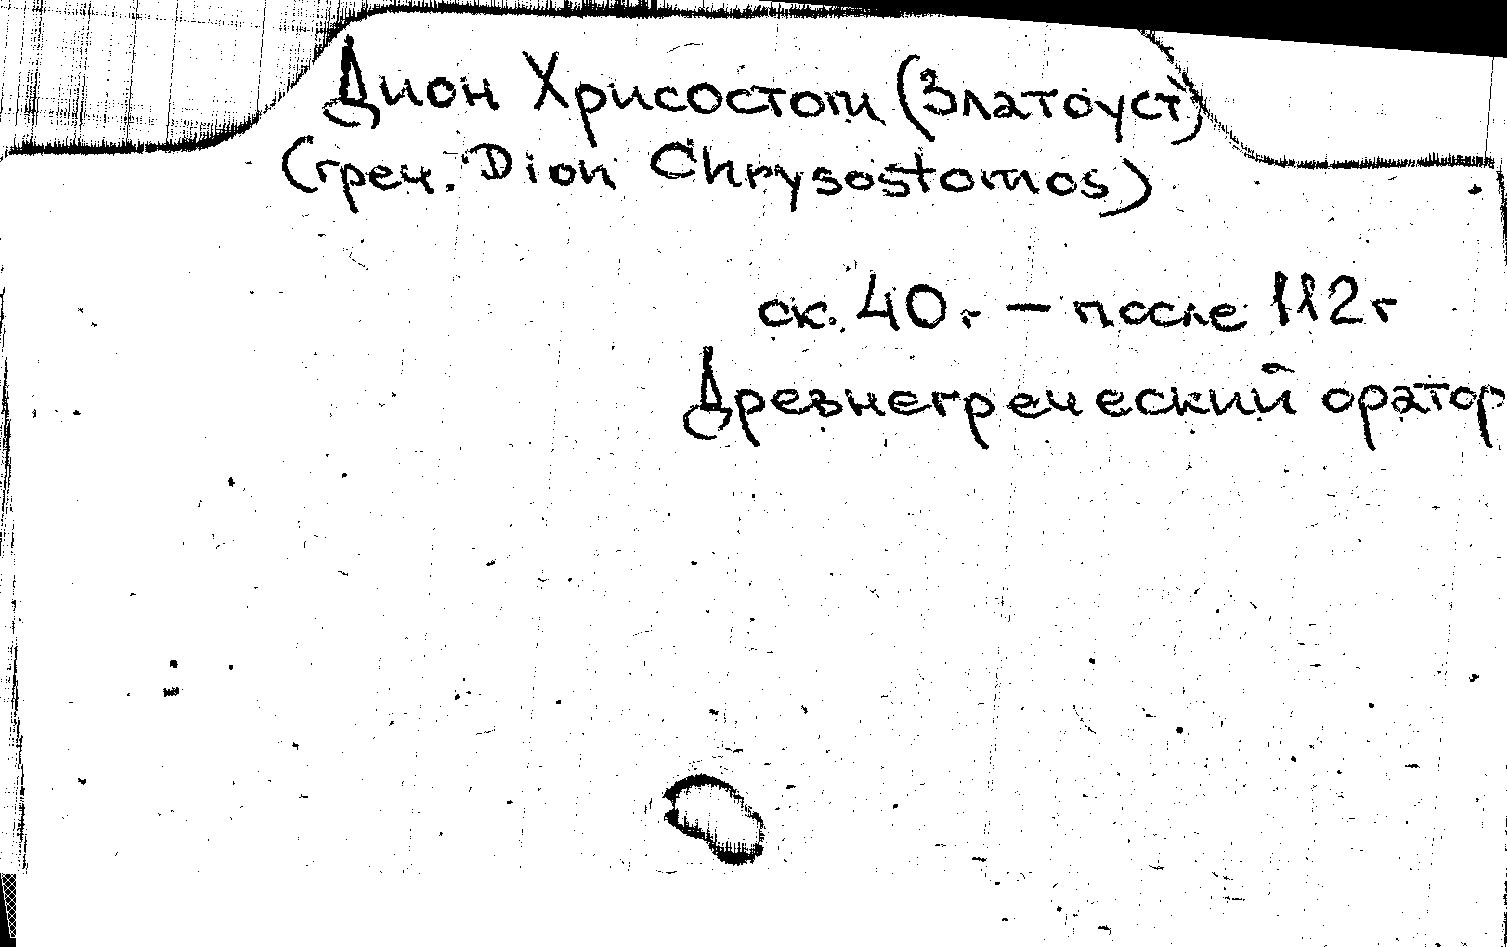 Дион Хрисостом (Златоуст)
(греч. Dion Chrysostomos)
ок. 40 г. – после 112 г
Древнегреческий оратор